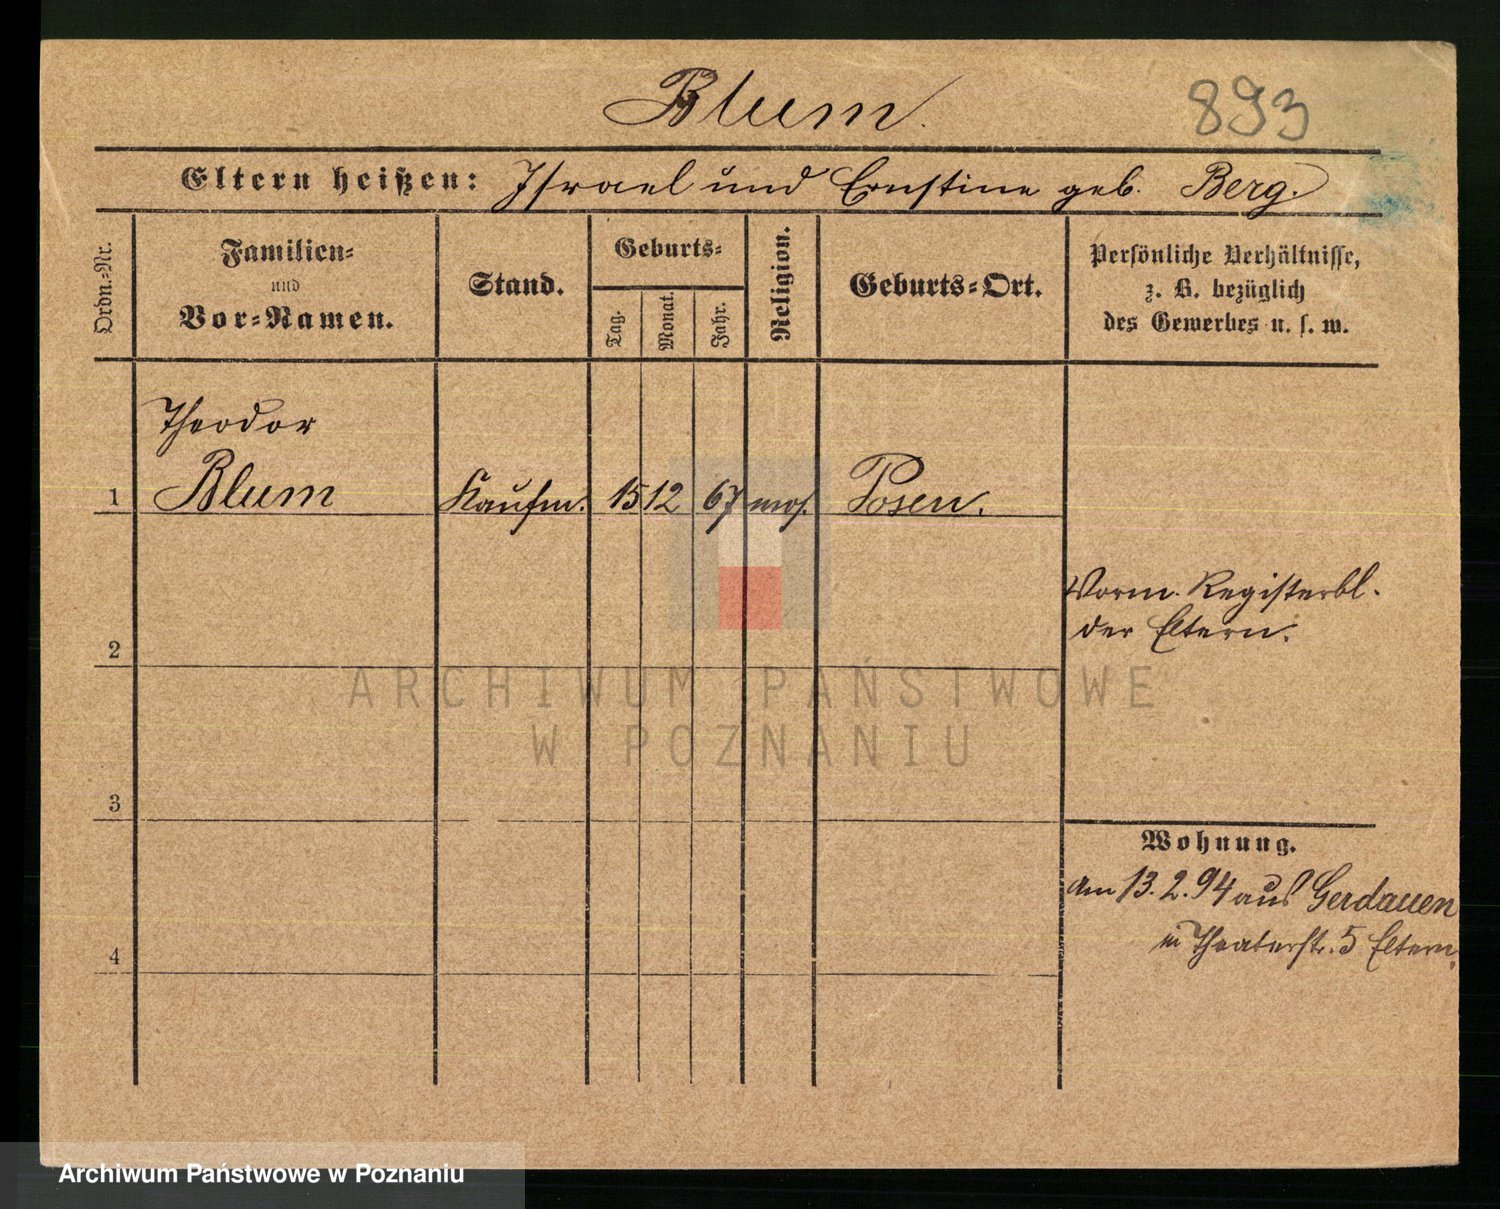 Blum.
893
Eltern heißen: Israel und Ernstine geb. Berg.
Ordn.-Nr.
Familien-
und
Vor-Namen.
Stand.
Geburts-
Tag.
Monat.
Jahr.
Religion.
Geburts-Ort.
Persönliche Verhältnisse,
z. B. bezüglich
des Gewerbes u. s. w.
Theodor
1 Blum Kaufm. 15 12 67 mos. Posen.
Vorm. Registerbl.
der Eltern.
2
ARCHIWUM PAŃSTWOWE
W POZNANIU
3
Wohnung.
am 13.2.94 aus Gerdauen
in Theaterstr. 5 Eltern.
4
Archiwum Państwowe w Poznaniu